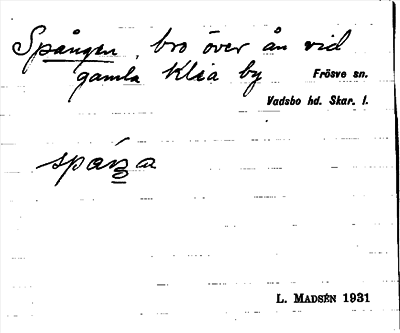 Spången, bro över ån vid
gamla Klia by
Frösve sn.
Vadsbo hd. Skar. l.
L. MADSÉN 1931